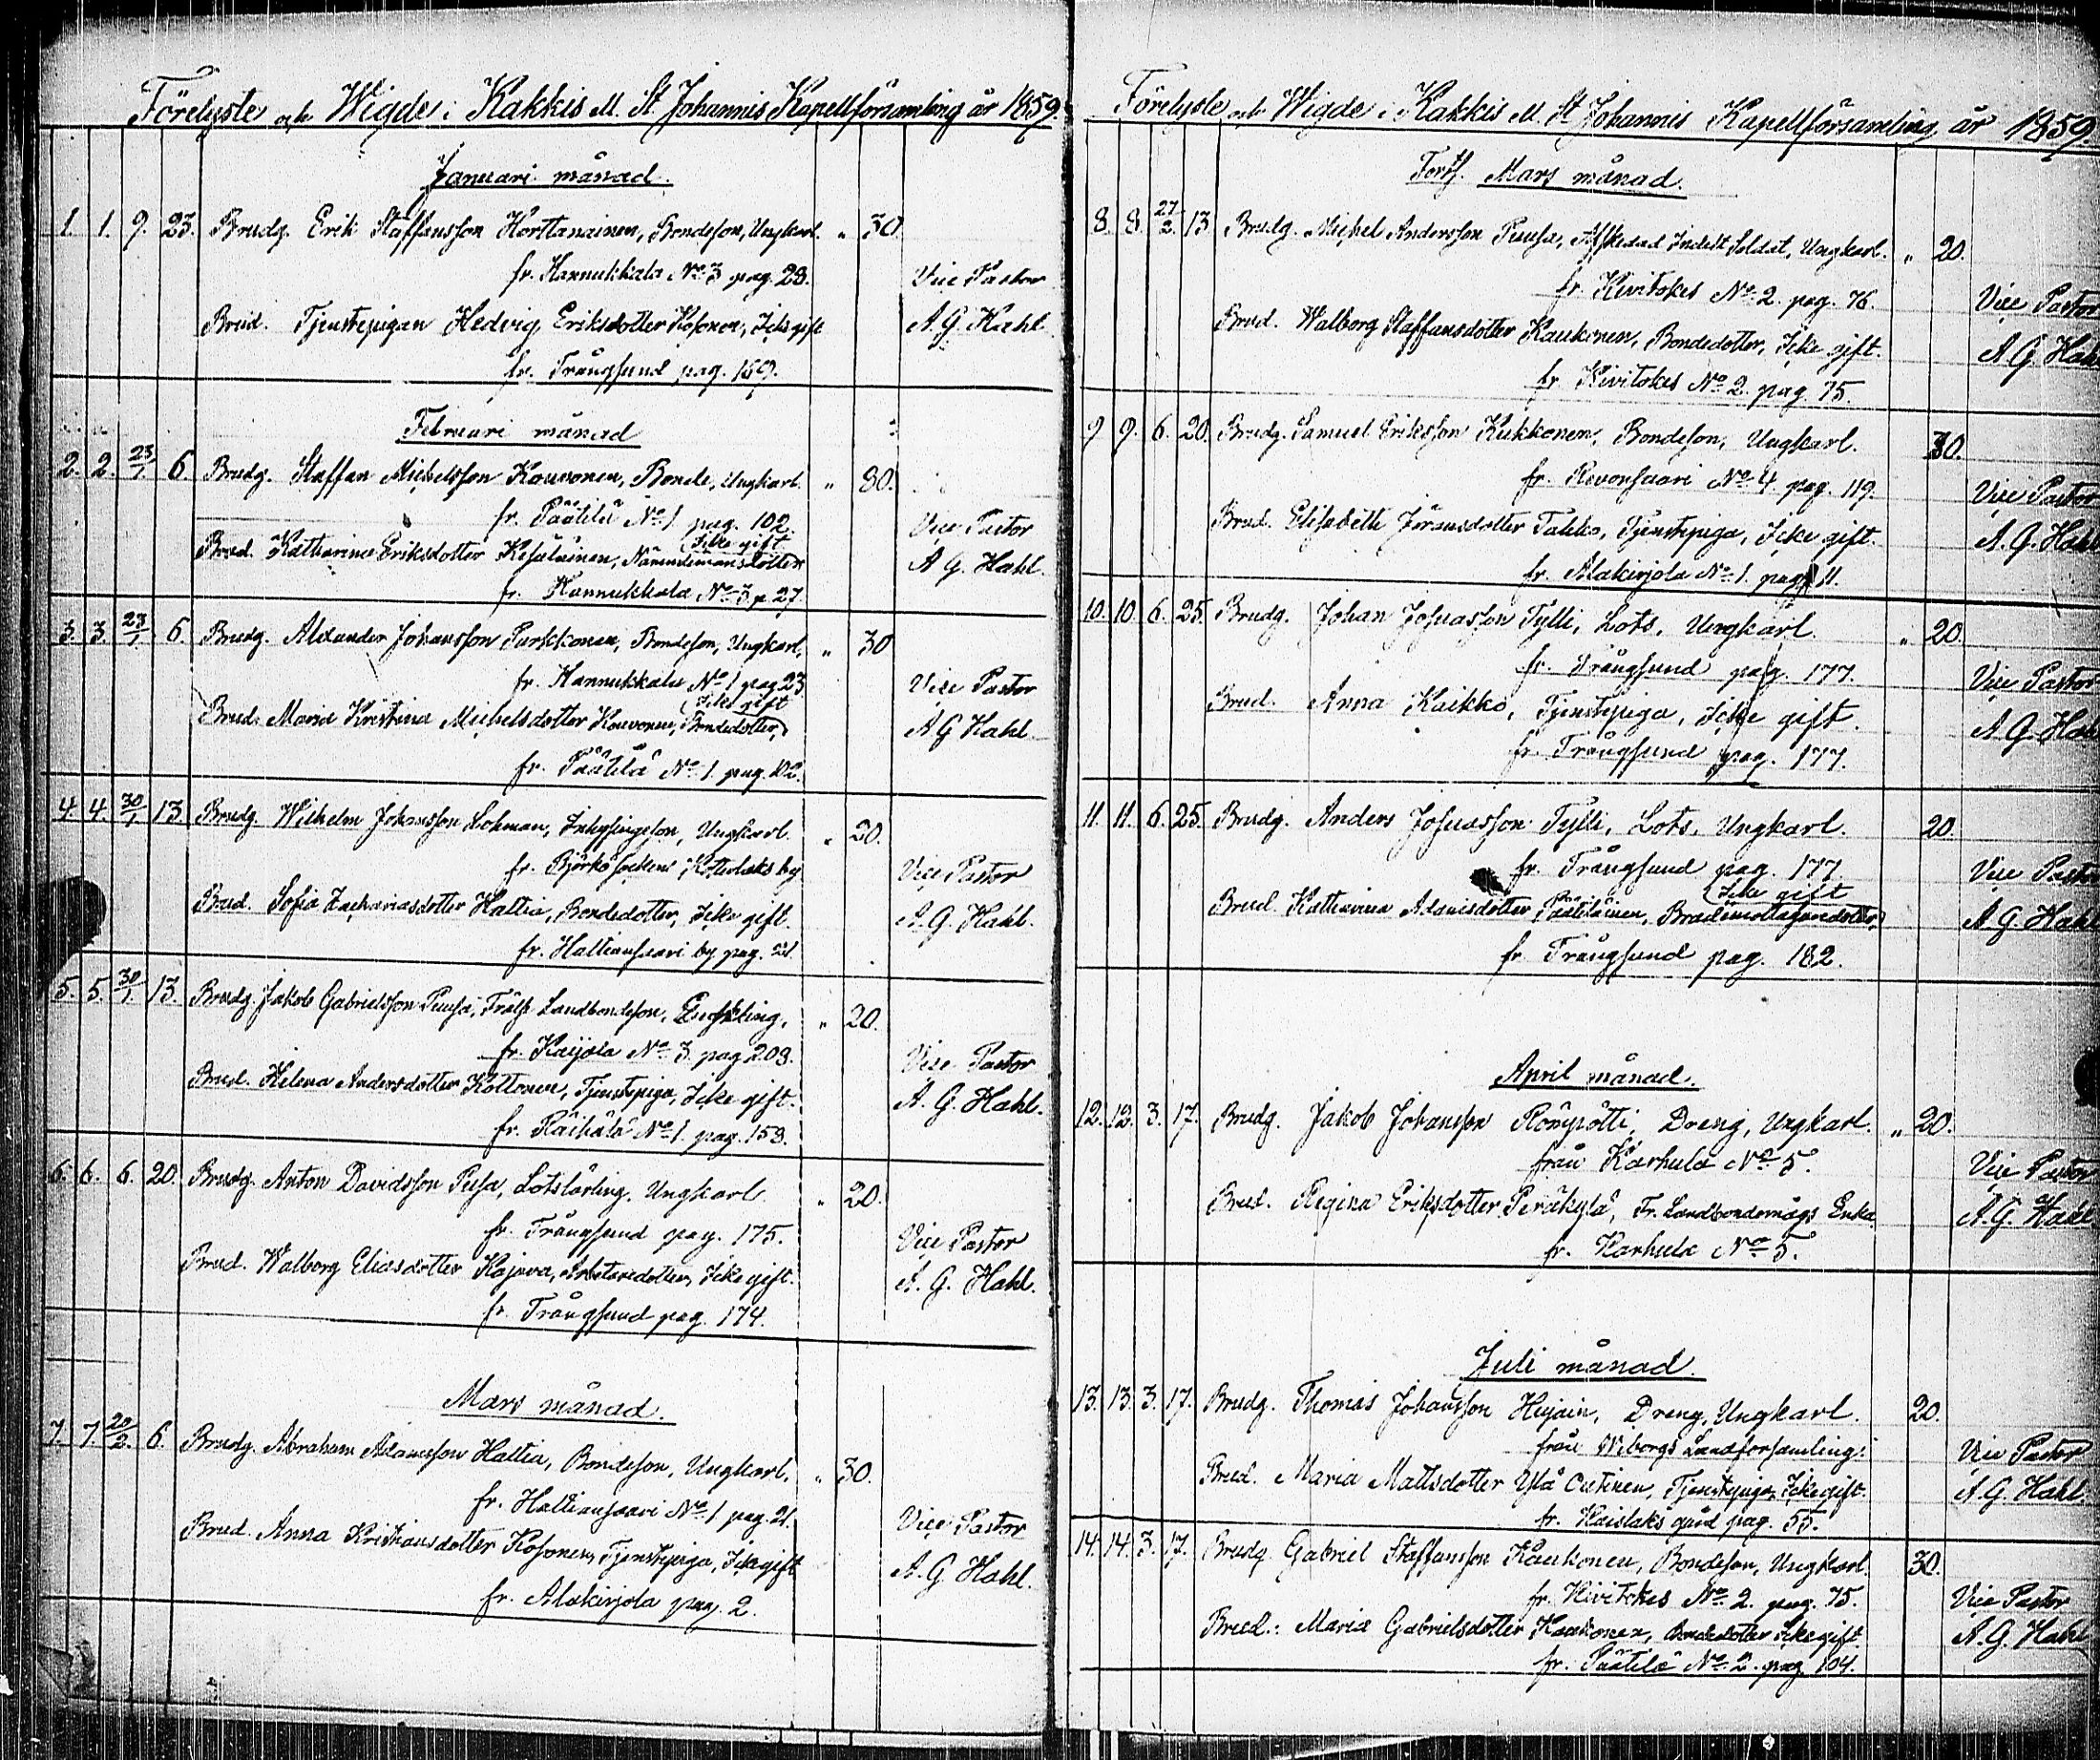 Förelyste och Wigde i Kakkis M. St Johannis Kapellförsamling år 1859.
Januari månad.
1. 1. 9. 23. Brudg. Erik Staffansson Horttanainen, Bondeson, Ungkarl. „ 30.
fr. Hannukkala No 3 pag. 28.
Vice Pastor
Brud. Tjenstepigan Hedvig Eriksdotter Kosonen, Icke gift
A. G. Hahl
fr. Trångsund pag. 169.
Februari månad
2. 2. 23/1. 6. Brudg. Staffan Michelsson Kouvonen, Bonde, Ungkarl. „ 30.
fr. Päätilä No 1 pag. 102.
Vice Pastor
Icke gift
Brud. Katharina Eriksdotter Kesäläinen, Nämndemansdotter
A G. Hahl.
fr. Hannukkala No 3 p. 27.
3. 3. 23/1. 6. Brudg. Alexander Johansson Purkkonen, Bondeson, Ungkarl, „ 30
fr. Hannukkala No 1 pag 23
Vice Pastor
Icke gift
Brud. Maria Kristina Michelsdotter Kouvonen, Bondedotter,
A G Hahl
fr. Päätilä No 1. pag. 102.
4. 4. 30/1. 13 Brudg. Wilhelm Johansson Lohman, Ungkarl. „ 20.
fr. Björkö socken by
Vice Pastor
Brud. Sofia Zachariasdotter Hattia, Bondedotter, Icke gift.
A. G. Hahl.
fr. Hattiansaari by pag. 21.
5. 5. 30/1. 13. Brudg. Jakob Gabrielsson Puusa, Frälse Landbondeson, „ 20.
fr. Kaijala No 3. pag 208.
Vice Pastor
Brud. Helena Andersdotter Kottonen, Tjenstepiga, Icke gift.
A. G. Hahl.
fr. Räihälä No 1. pag. 158.
6. 6. 6. 20. Brudg. Anton Davidsson Pusa, Lotslärling, Ungkarl „ 20.
fr. Trångsund pag. 175.
Vice Pastor
Brud. Walborg Eliasdotter Kajava, Icke gift.
A. G. Hahl.
fr. Trångsund pag. 174.
Mars månad.
7. 7. 20/2. 6. Brudg. Abraham Adamsson Hattia, Bondeson, Ungkarl. „ 30.
fr. Hattiansaari No 1 pag. 21.
Vice Pastor
Brud. Anna Kristiansdotter Kosonen, Tjenstepiga, Icke gift
A. G. Hahl.
fr. Alakirjola pag. 2.
Förelyste och Wigde i Kakkis M. St Johannis Kapellförsamling år 1859.
Forts. Mars månad.
8. 8. 27/2. 13 Brudg. Michel Andersson Puusa, Afskedad Indelt Soldat, Ungkarl. „ 20.
fr. Kivitokes No 2. pag. 76.
Vice Pastor
Brud. Walborg Staffansdotter Kaukonen, Bondedotter, Icke gift.
A G Hahl
fr. Kivitokes No 2. pag. 75.
9 9. 6. 20. Brudg. Samuel Eriksson Kukkonen, Bondeson, Ungkarl. 30.
fr. Revonsaari No 4. pag. 119.
Vice Pastor
Brud. Elisabeth Jöransdotter Takko, Tjenstepiga, Icke gift.
A. G. Hahl
fr. Alakirjola No 1. pag 11.
10. 10. 6. 25. Brudg. Johan Josuasson Tylli, Lots, Ungkarl. „ 20.
fr. Trångsund pag. 177.
Vice Pastor
Brud. Anna Kaikko, Tjenstepiga, Icke gift.
A G Hahl
fr. Trångsund pag. 177.
11. 11. 6. 25. Brudg. Anders Josuasson Tylli, Lots, Ungkarl. 20.
fr. Trångsund pag. 177.
Vice Pastor
Icke gift
Brud. Katharina Adamsdotter Päätiläinen,
A. G. Hahl
fr. Trångsund pag. 182.
April månad.
12. 12. 3. 17. Brudg. Jakob Johansson Römpötti, Dreng, Ungkarl. „ 20.
från Karhula No 5.
Vice Pastor
Brud. Regina Eriksdotter Peräkylä, Fr. Landbondemågs Enka
A. G. Hahl
fr. Karhula No 5.
Juli månad.
13. 13. 3. 17. Brudg. Thomas Johansson Hujain, Dreng, Ungkarl. 20.
från Wiborgs Landförsamling.
Vice Pastor
Brud. Maria Mattsdotter Ylä Outinen, Tjenstepiga, Icke gift.
A. G. Hahl.
fr. Kaislaks gård pag. 55.
14. 14. 3. 17. Brudg. Gabriel Staffansson Kaukonen, Bondeson, Ungkarl. 30.
fr. Kivitokes No 2. pag. 75.
Vice Pastor
Brud. Maria Gabrielsdotter Kaukonen, Bondedotter Icke gift
A. G. Hahl
fr. Päätilä No 2. pag. 104.